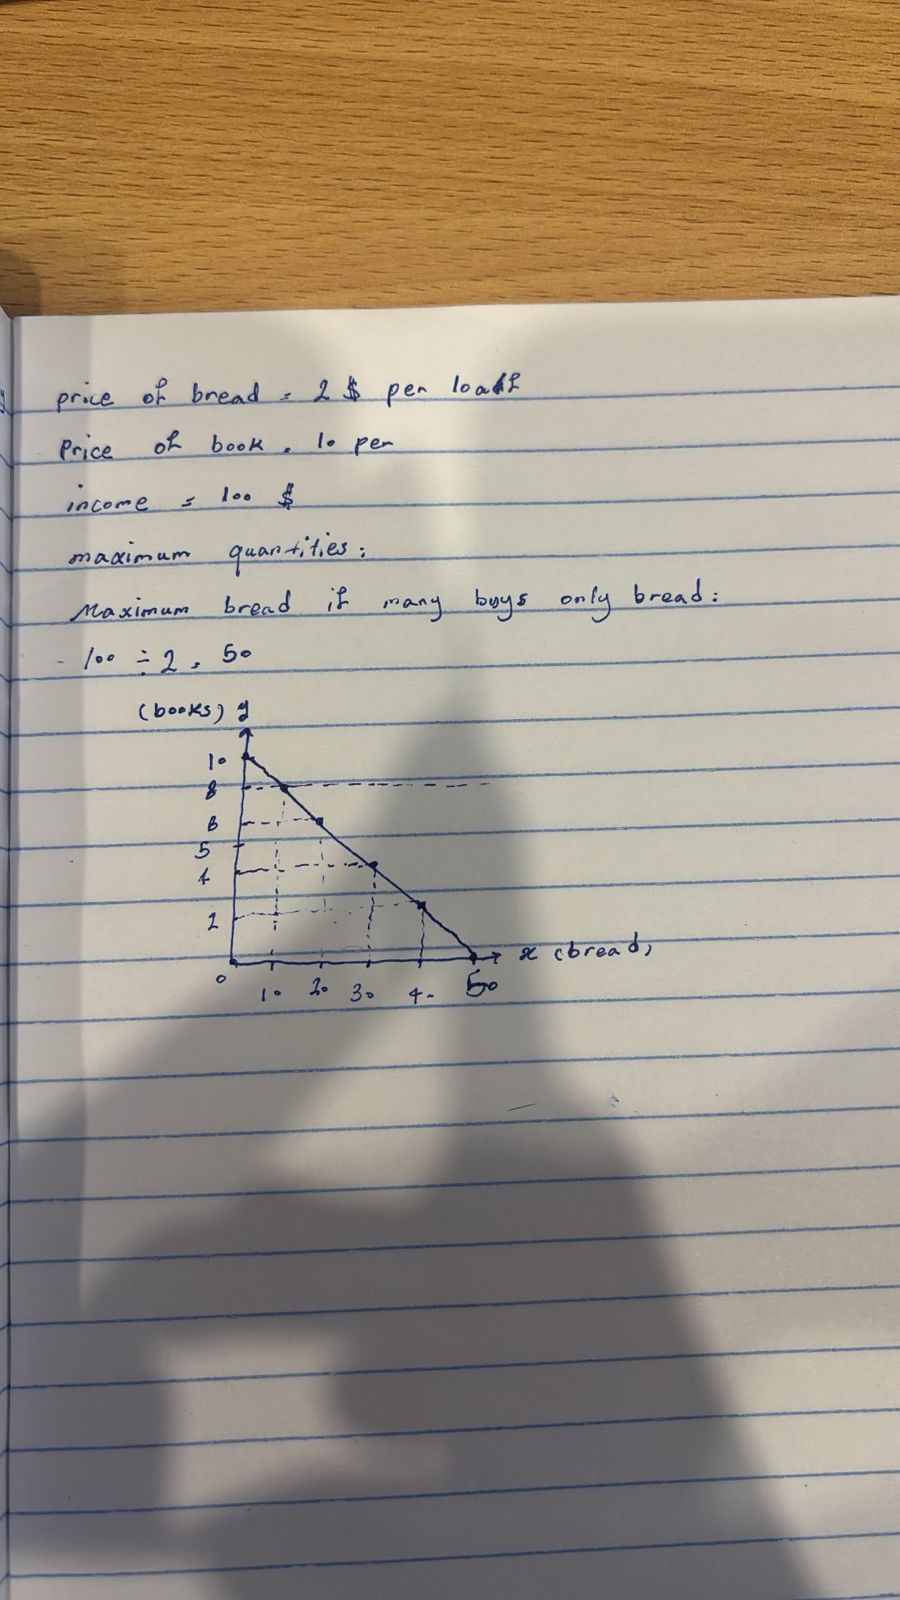 price of bread = 2 $ per loaff
Price of book = 10 per
income = 100 $
maximum quantities:
Maximum bread if many buys only bread:
100 ÷ 2 = 50
(books) y
10
8
6
5
4
2
0
10 20 30 40 50
x (bread)